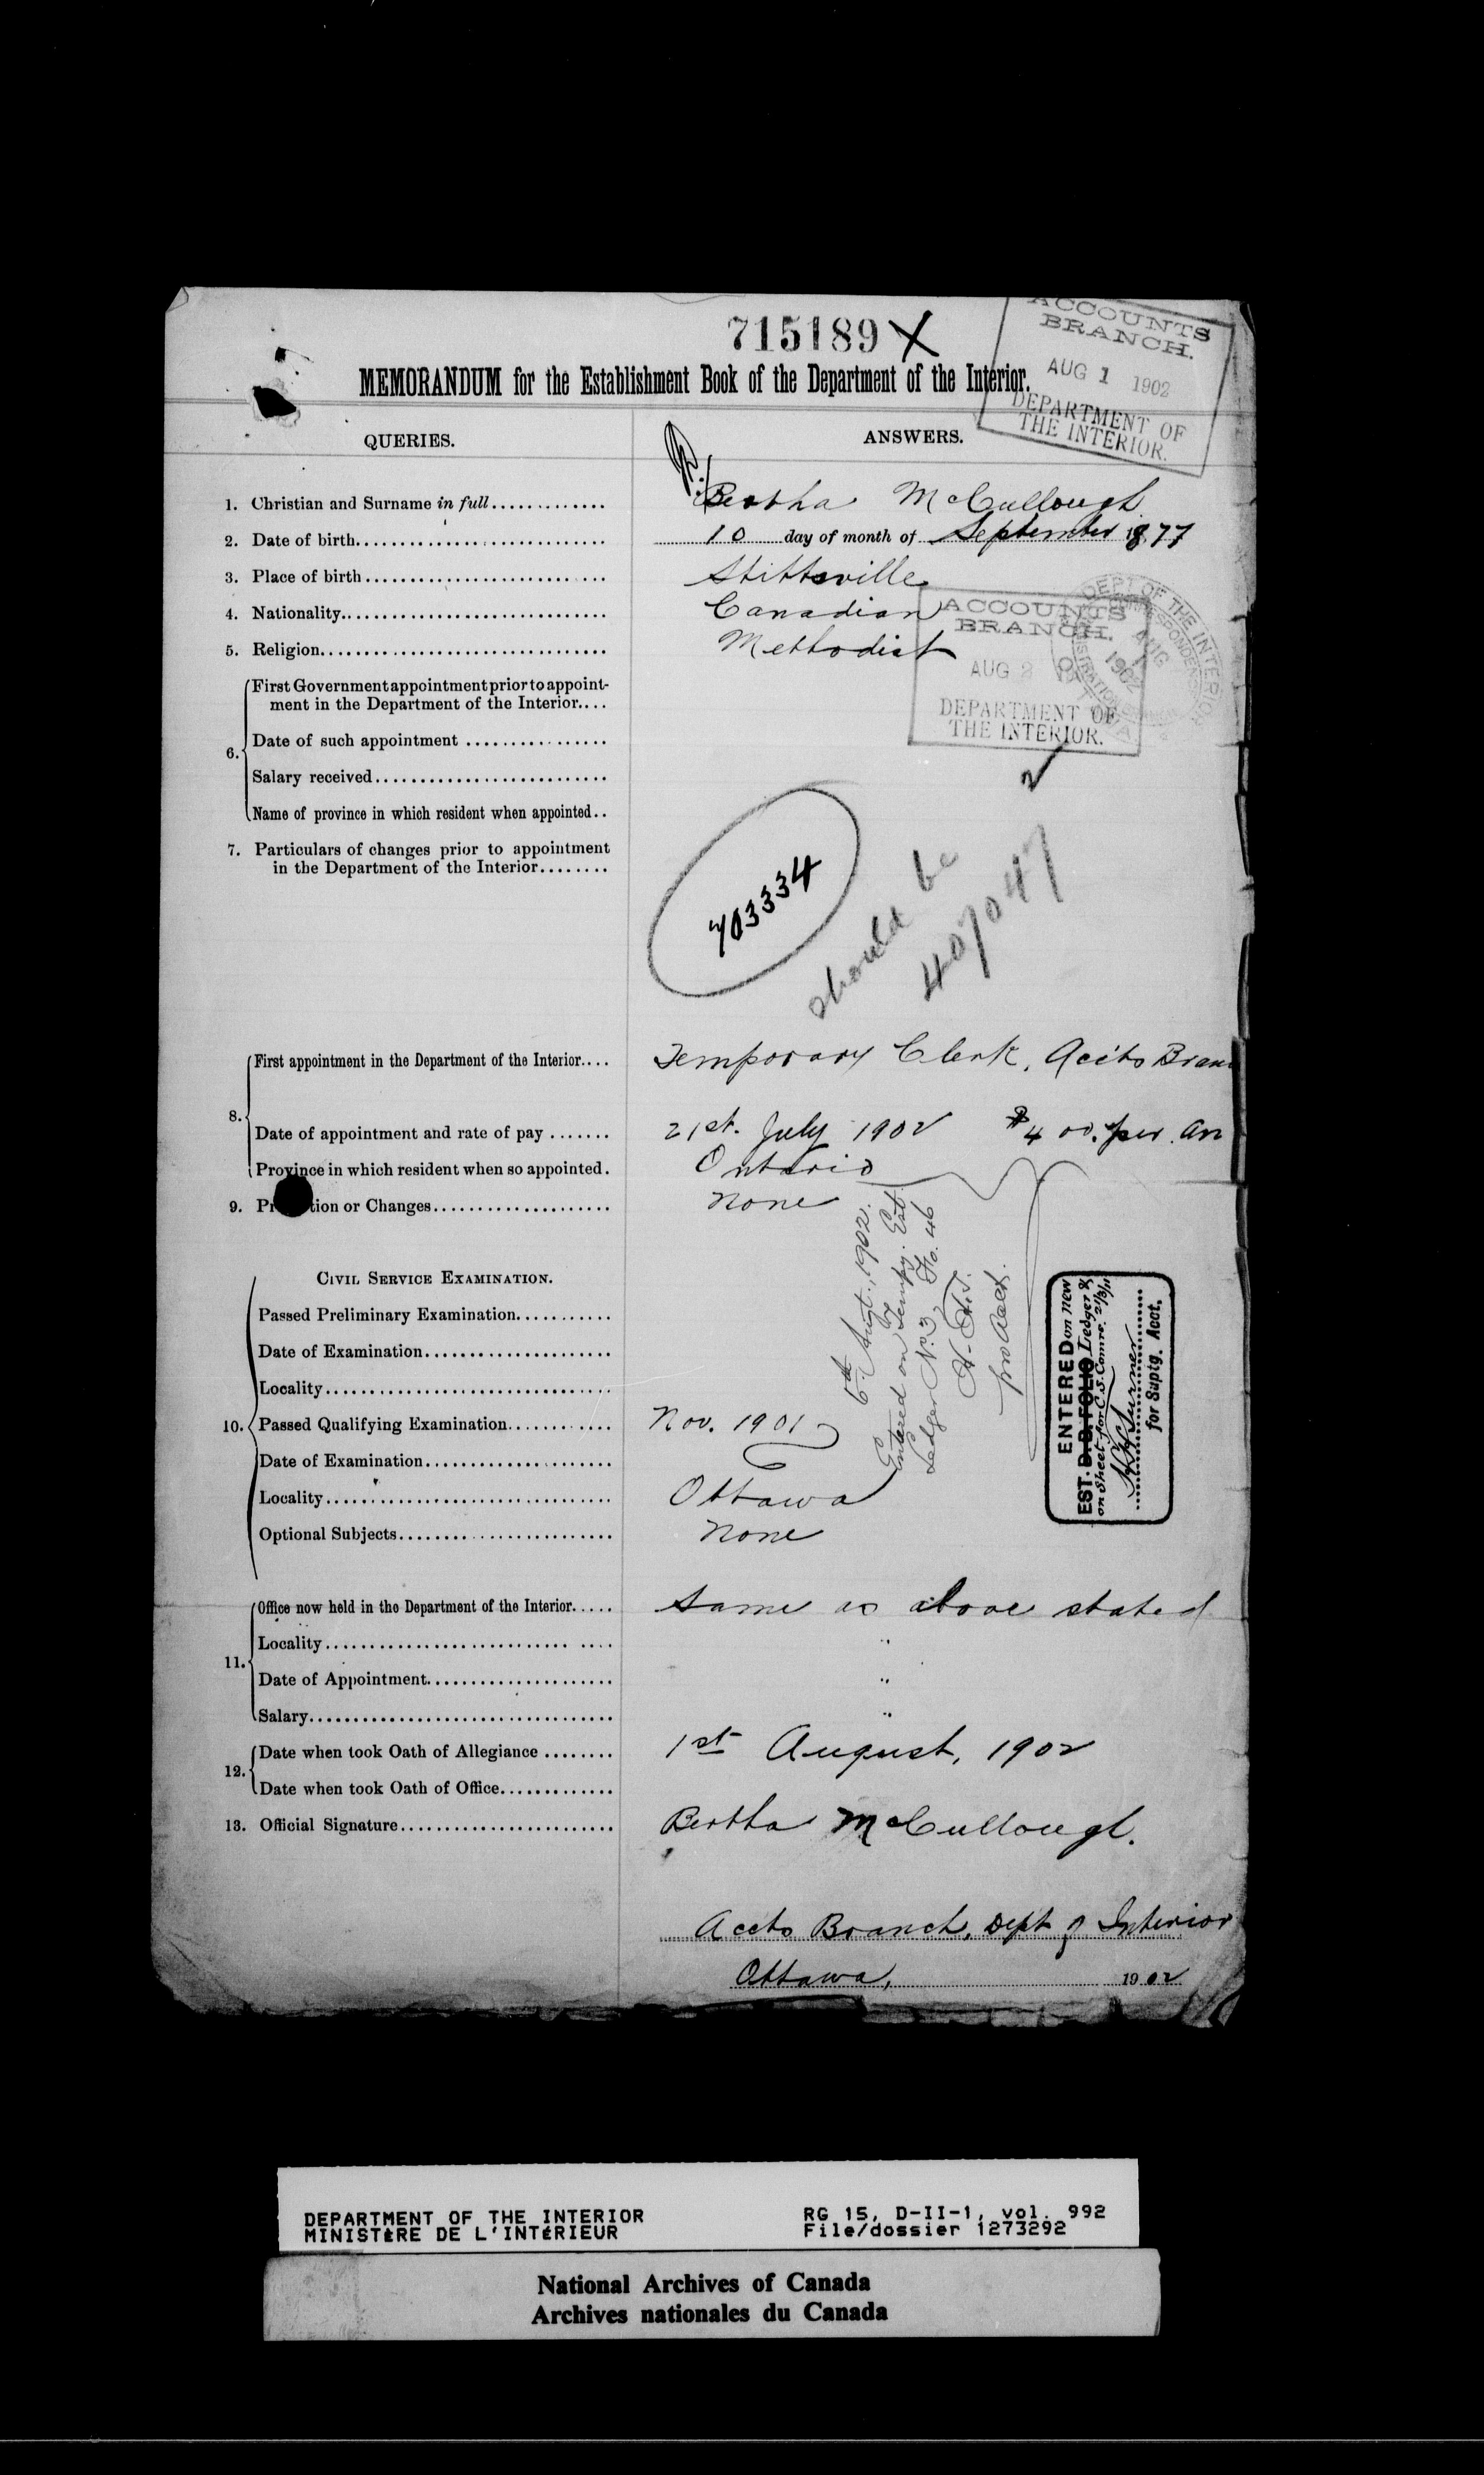 715189 X
ACCOUNTS
BRANCH.
AUG 1 1902
DEPARTMENT OF
THE INTERIOR.
MEMORANDUM for the Establishment Book of the Department of the Interior.
QUERIES.
ANSWERS.
1. Christian and Surname in full............. Bertha McCullough
2. Date of birth............................ 10 day of month of September 1877
3. Place of birth........................... Stittsville
4. Nationality.............................. Canadian
5. Religion................................. Methodist
ACCOUNTS
BRANCH.
AUG 2
DEPARTMENT OF
THE INTERIOR.
DEPT OF THE INTERIOR
AUG
1902
6. First Government appointment prior to appoint-
ment in the Department of the Interior....
Date of such appointment ................
Salary received..........................
Name of province in which resident when appointed..
7. Particulars of changes prior to appointment
in the Department of the Interior........
703334
should be
407047
8. First appointment in the Department of the Interior.... Temporary Clerk, Accts Bran
Date of appointment and rate of pay ....... 21st. July 1902 $400. per. an
Province in which resident when so appointed. Ontario
9. Pr tion or Changes.................... none
6th Augt., 1902.
Entered on Tempy. Est.
Ledger No. 3, Fo. 46
pro Acct.
CIVIL SERVICE EXAMINATION.
10. Passed Preliminary Examination...........
Date of Examination.....................
Locality................................
Passed Qualifying Examination............ Nov. 1901
Date of Examination.....................
Locality................................ Ottawa
Optional Subjects........................ none
ENTERED on new
EST. D.B. FOLIO Ledger &
on Sheet for C.S. Comre. 21/3/11
Turner
for Suptg. Acct.
11. Office now held in the Department of the Interior..... Same as above stated
Locality........................... .... "
Date of Appointment..................... "
Salary.................................. "
12. Date when took Oath of Allegiance ........ 1st August, 1902
Date when took Oath of Office.............
13. Official Signature........................ Bertha McCullough.
Accts Branch, Dept of Interior
Ottawa, 1902
DEPARTMENT OF THE INTERIOR
MINISTÈRE DE L'INTÉRIEUR
RG 15, D-II-1, vol. 992
File/dossier 1273292
National Archives of Canada
Archives nationales du Canada